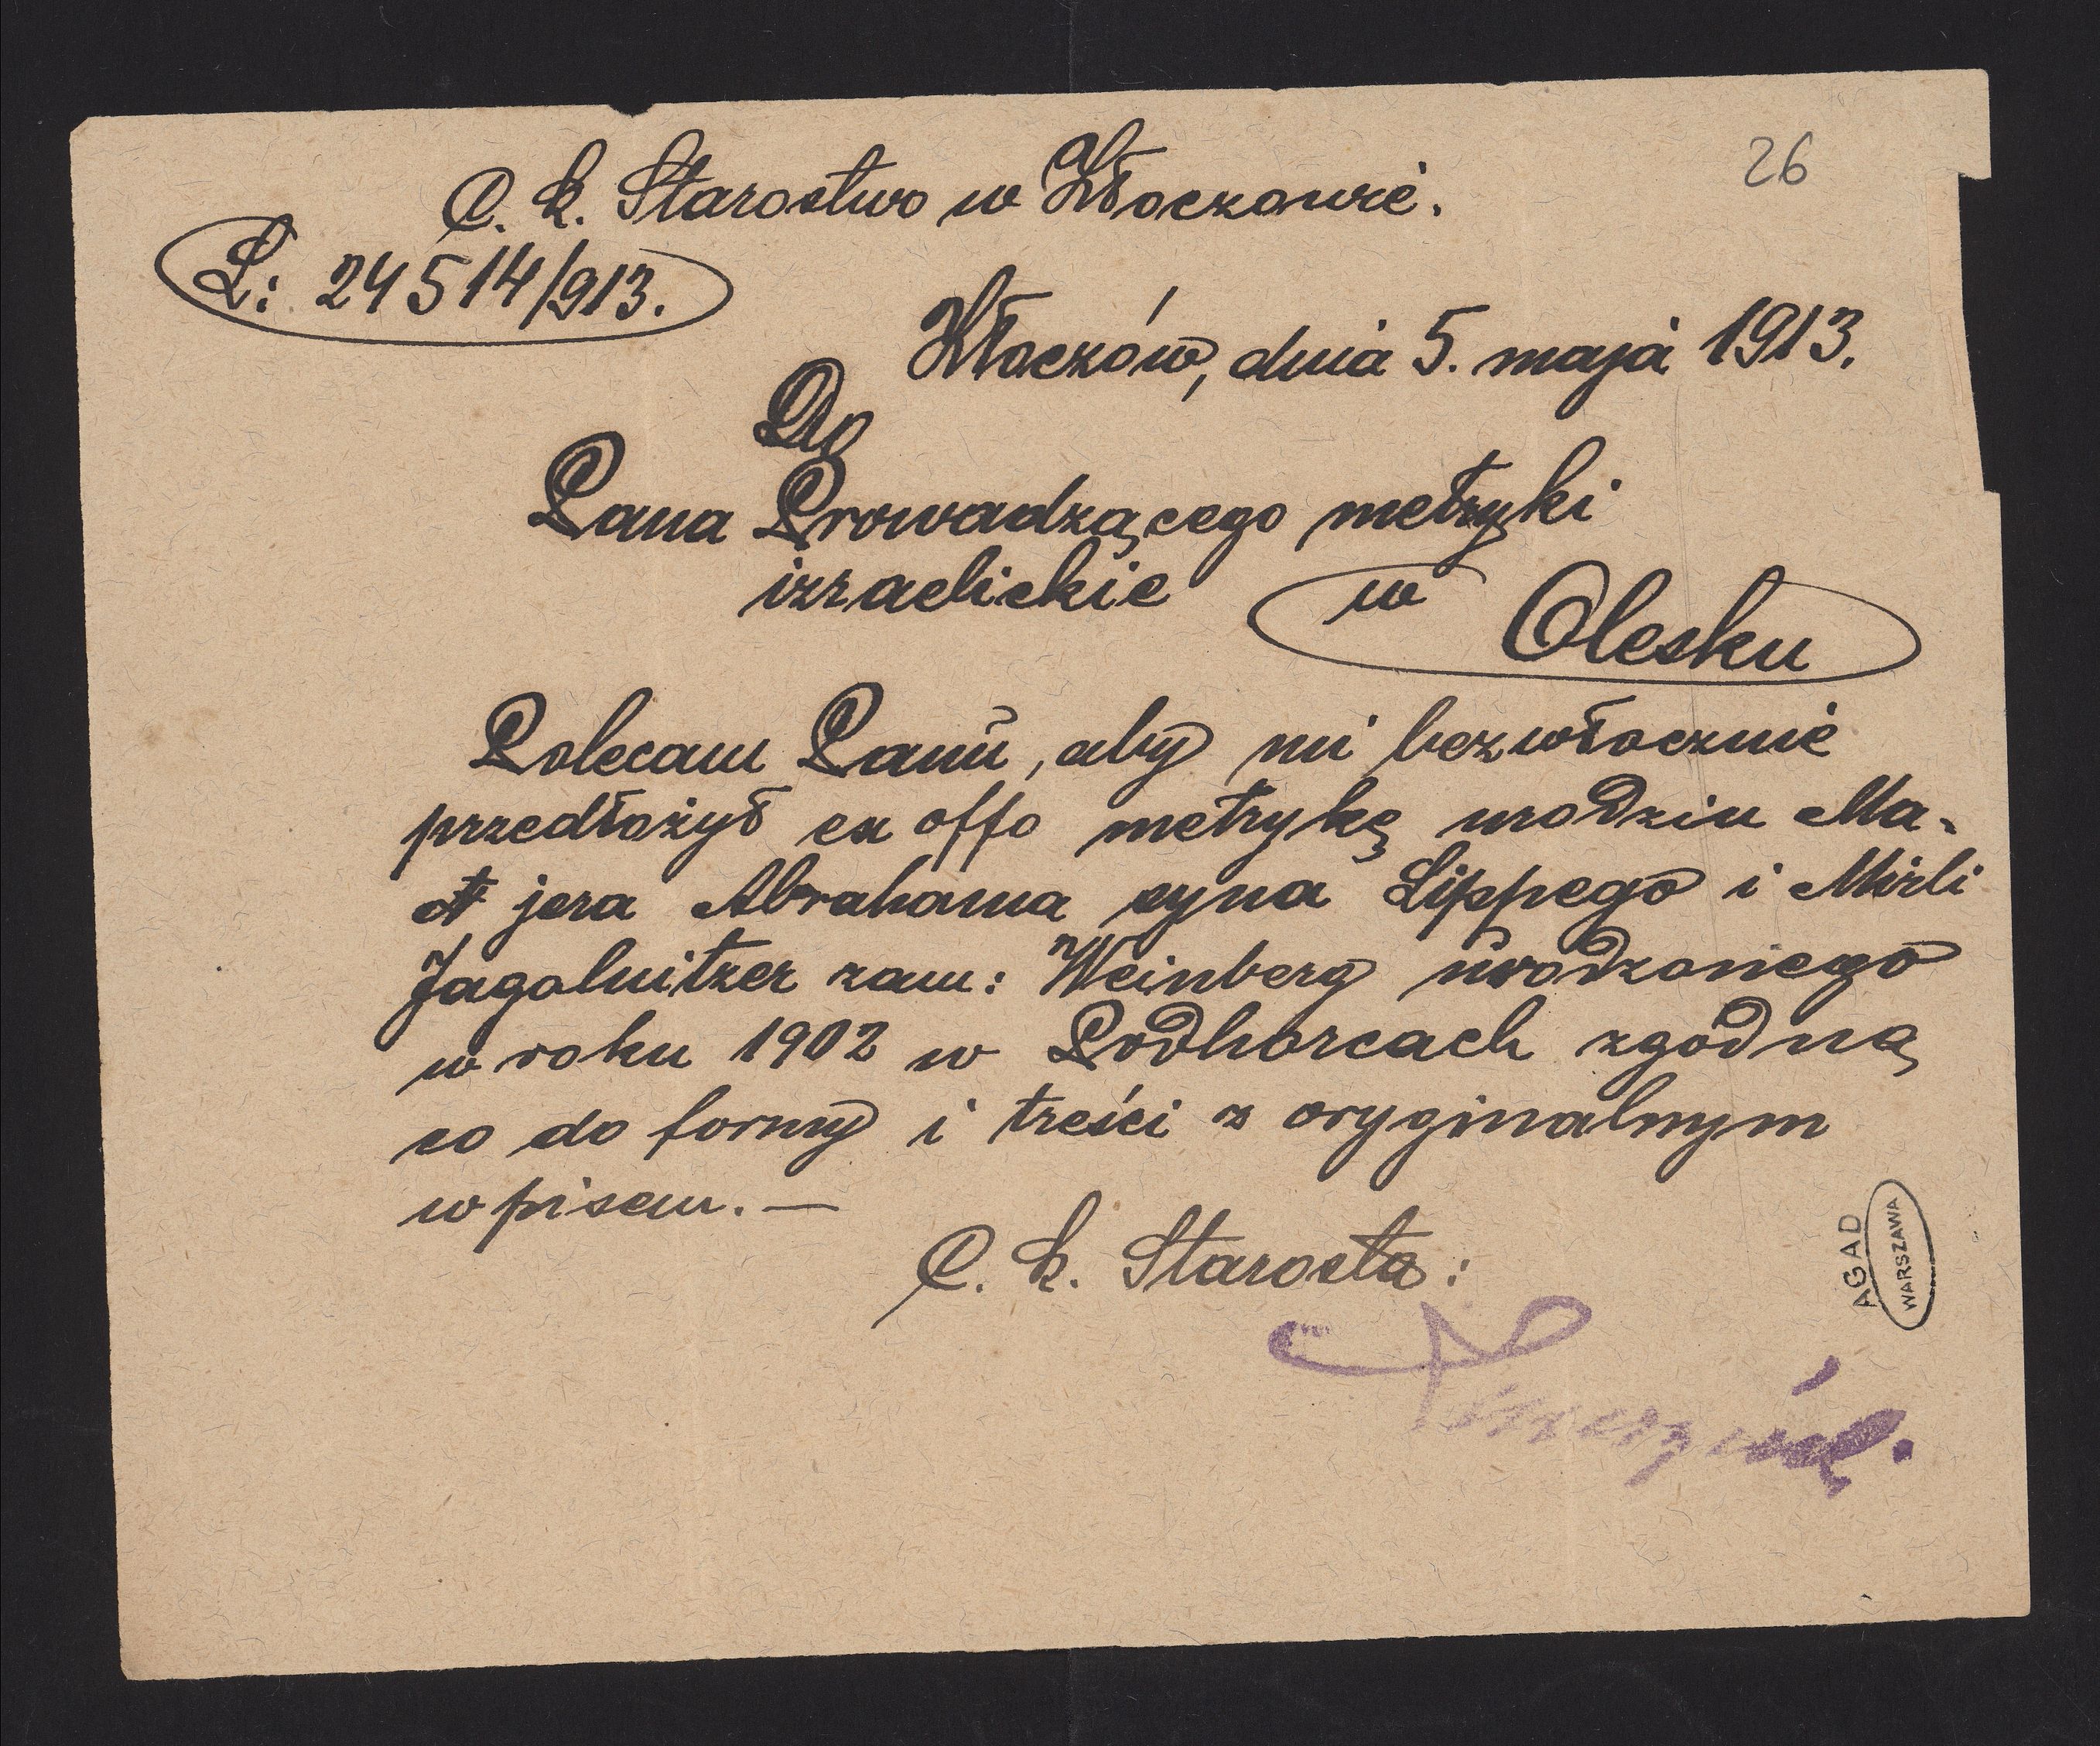 26
C. k. Starostwo w Złoczowie.
L: 24514/913.
Złoczów, dnia 5. maja 1913.
Do
Pana Prowadzącego metryki
izraelickie w Olesku
Polecam Panu, aby mi bezwłocznie
przedłożył ex offo metrykę urodzin Ma-
jera Abrahama syna Lippego i Mirli
Jagolnitzer zam: Weinberg urodzonego
w roku 1902 w Podhorcach zgodną
co do formy i treści z oryginalnym
wpisem. —
C. k. Starosta:
AGAD
WARSZAWA